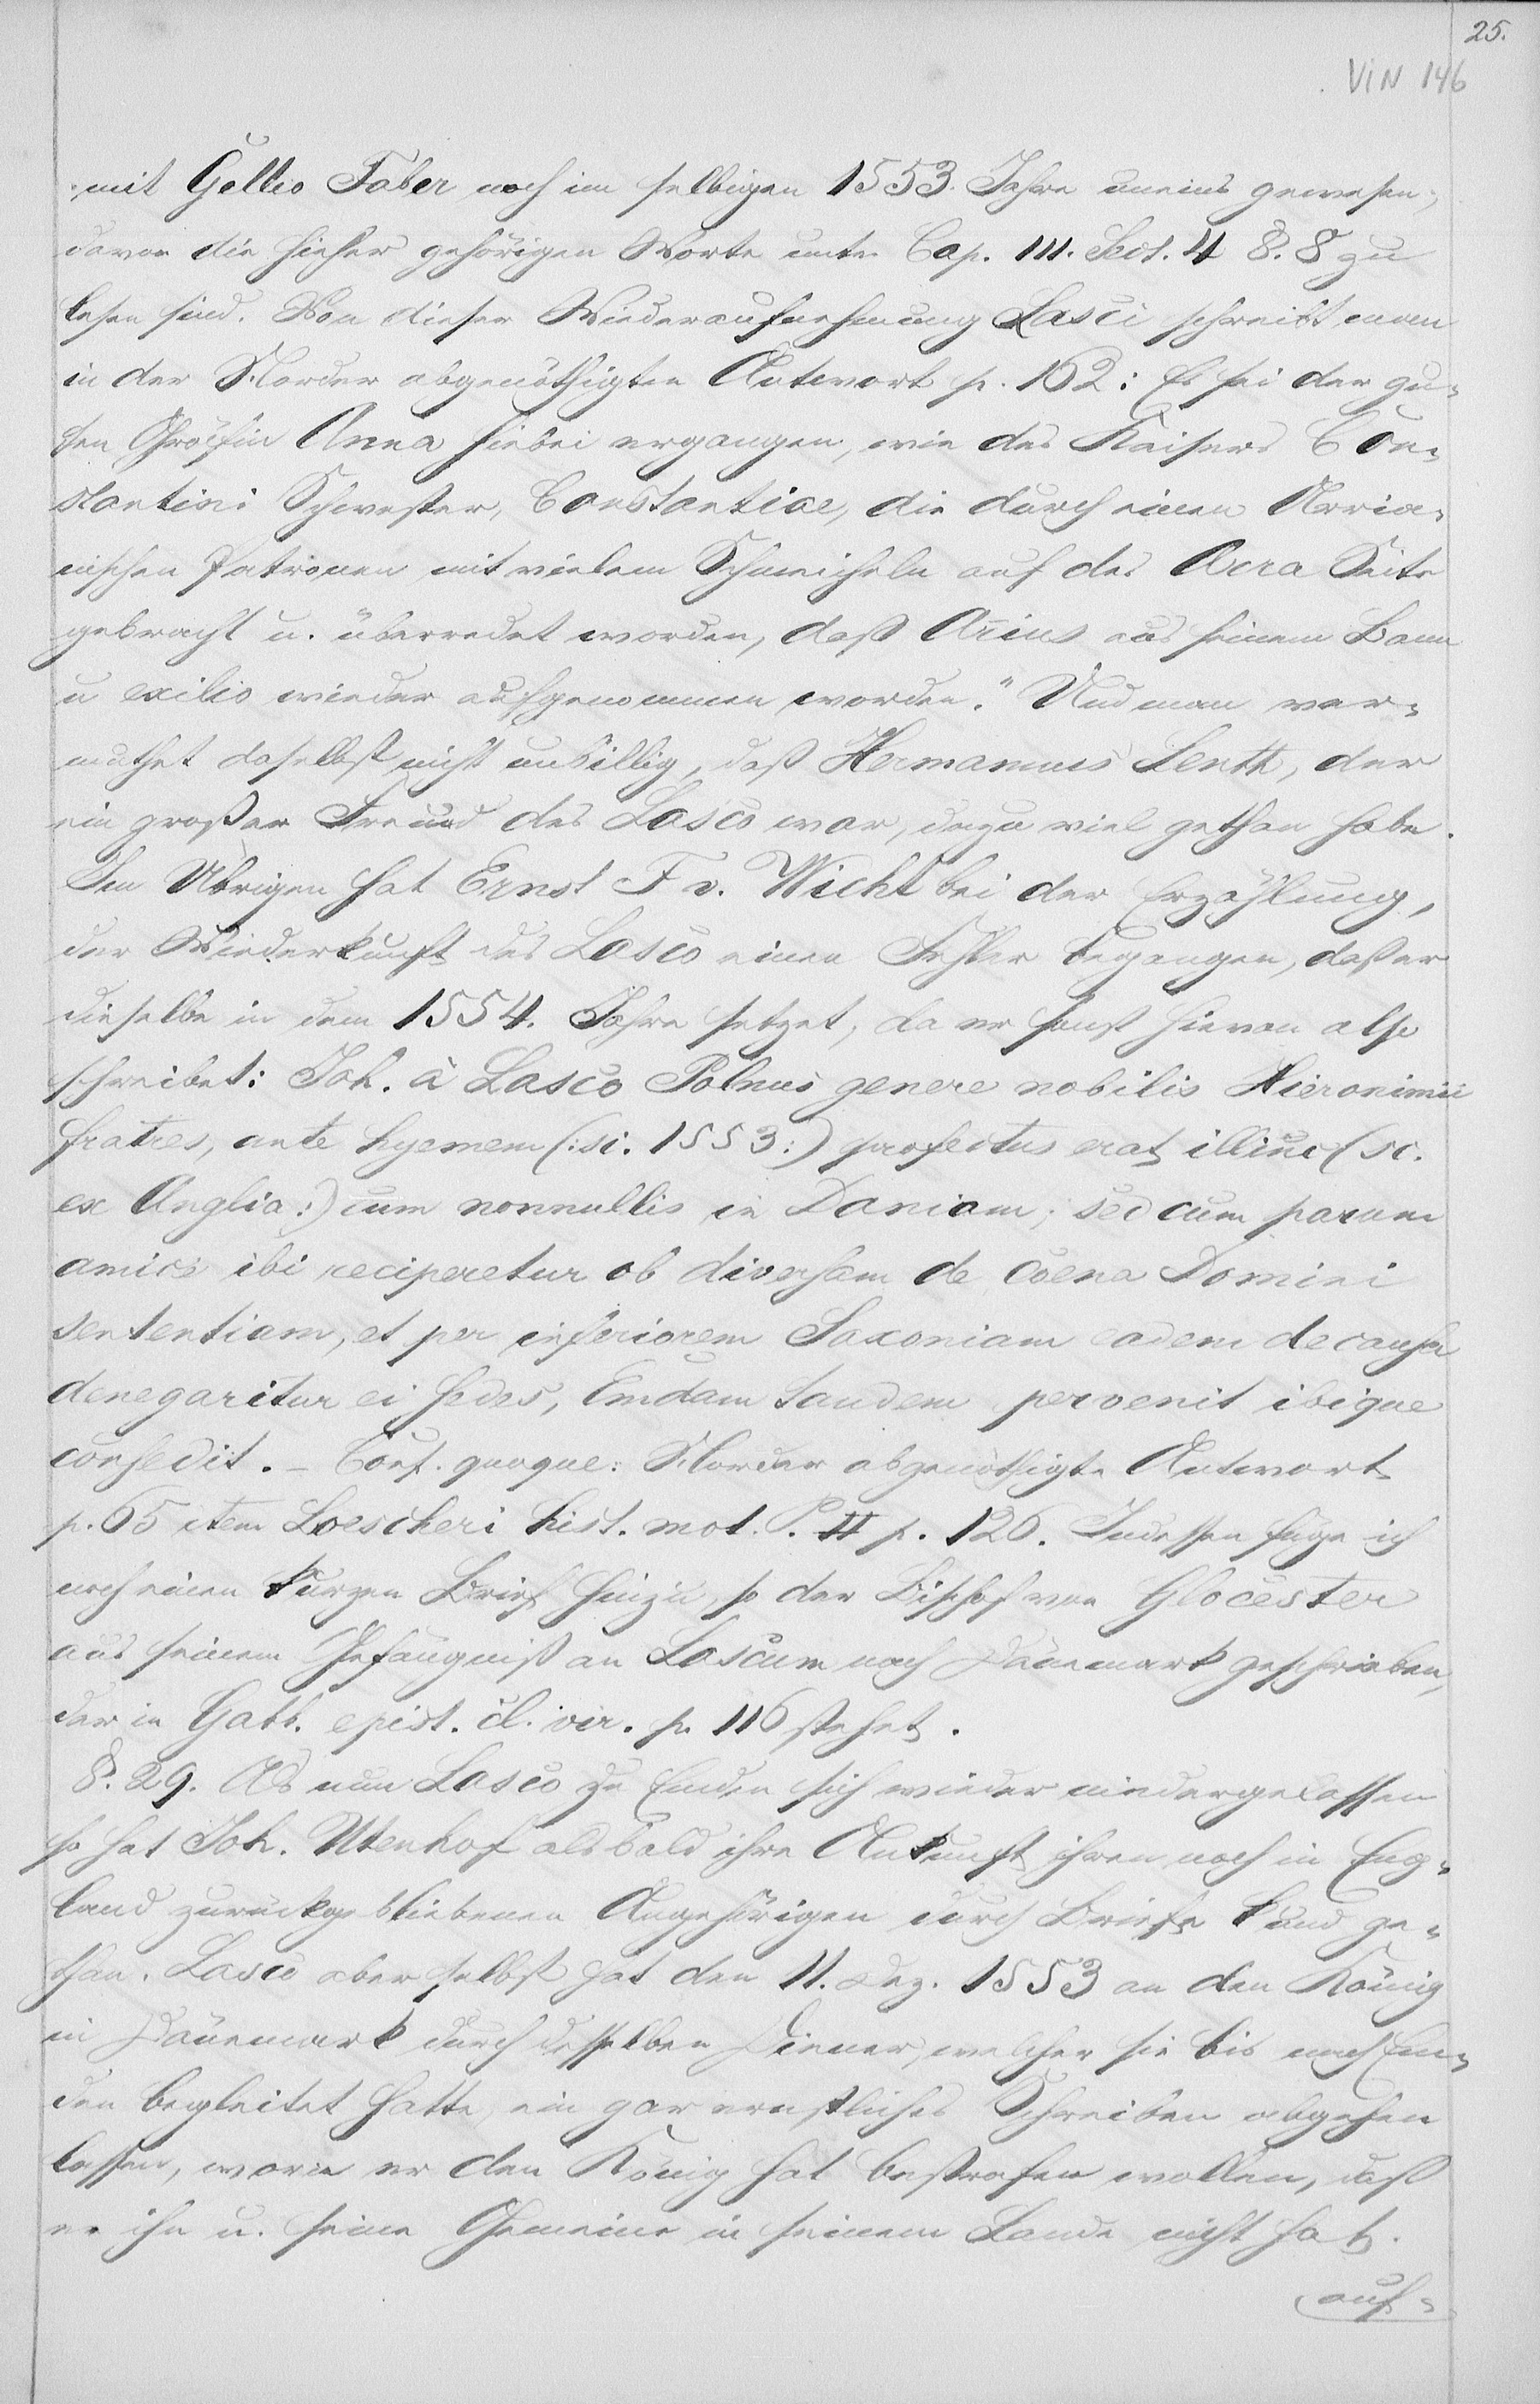 25.
VIN 146
mit Gellio Faber noch im selbigen 1553. Jahre uneins gewesen,
davon die hieher gehörigen Worte unter Cap. III. Sect. 4 §. 8 zu
lesen sind. Von dieser Wiederaufnehmung Lasci schreibt man
in der Norder abgenöthigten Antwort p. 162: Es sei der gu¬
ten Gräfin Anna hiebei ergangen, wie des Kaisers Con¬
stantini Schwester, Constantiae, die durch einen Arria¬
nischen Patronen mit vielem Schmeicheln auf des Seite
gebracht u. überredet worden, daß Arius aus seinem Bann
u exilio wieder aufgenommen worden." Und man ver¬
muthet daselbst nicht unbillig, daß Hermannus Lenth, der
ein großer Freund des Lasco war, dazu viel gethan habe.
Im Übrigen hat Ernst F v. Wicht bei der Erzählung,
der Wiederkunft des Lasco einen Fehler begangen, daß er
dieselbe in dem 1554. Jahre setzet, da er sonst hievon also
schreibet: Joh. à Lasco Polnus genere nobilis Hieronimii
fratres, ante hyemem (: si. 1553:) profectus erat illinc (sc.
ex Anglia:) cum nonnullis in Daniam; sed cum parum
amice ibi reciperetur ob diversam de coena Domini
sententiam, et per inferiorem Saxoniam eadem de causa
denegaritur ei sedes, Emdam tandem pervenit ibique
consedit. - Conf. quoque: Norder abgenöthigte Antwort
p. 65 item Loescheri hist. mot. P. II p. 126. Indessen füge ich
noch einen kurzen Brief hinzu, so der Bischof von Glocester
aus seinem Gefängniß an Lascum nach Dänemark geschrieben,
der in Gabb. epist. cl. vir. p. 116 stehet.
§. 29. Als nun Lasco zu Emden sich wieder niedergelassen
so hat Joh. Utenhof alsbald ihre Ankunft ihren noch in Eng¬
land zurückgebliebenen Angehörigen durch Briefe kund ge¬
than. Lasco aber selbst hat den 11. Dez. 1553 an den König
in Dänemark durch desselben Diener, welcher sie bis nach Em¬
den begleitet hatte, ein gar ernstliches Schreiben abgehen
lassen, worin er den König hat bestrafen wollen, daß
er ihn u. seine Gemeine in seinem Lande nicht hat.
auf¬